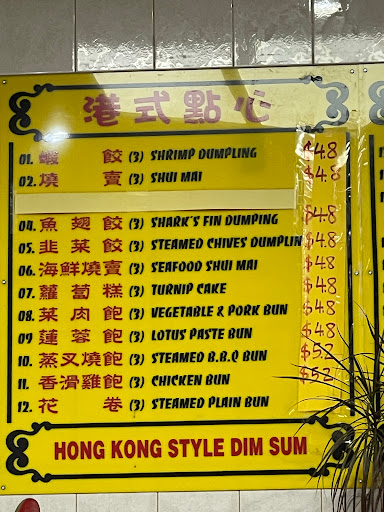 港式點心
01. 蝦餃 (3) SHRIMP DUMPLING $4.8
02. 燒賣 (3) SHUI MAI $4.8
04. 魚翅餃 (3) SHARK'S FIN DUMPING $4.8
05. 韭菜餃 (3) STEAMED CHIVES DUMPLIN $4.8
06. 海鮮燒賣 (3) SEAFOOD SHUI MAI $4.8
07. 蘿蔔糕 (3) TURNIP CAKE $4.8
08. 菜肉飽 (3) VEGETABLE & PORK BUN $4.8
09 蓮蓉飽 (3) LOTUS PASTE BUN $4.8
10. 蒸叉燒飽 (3) STEAMED B.B.Q BUN $5.2
11. 香滑雞飽 (3) CHICKEN BUN $5.2
12. 花卷 (3) STEAMED PLAIN BUN
HONG KONG STYLE DIM SUM